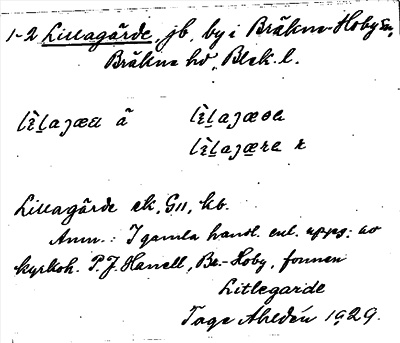 1-2 Lillagärde, jb, by i Bräkne-Hoby sn,
Bräkne hd, Blek. l.
lìlajæa ã lìlajæəa
lìlajæra r
Lillagärde ek, G11, kb.
Anm.: I gamla handl. enl. uppg. av
kyrkoh. P.J. Hanell, Br.-Hoby, formen
Litlegarde
Tage Ahldén 1929.